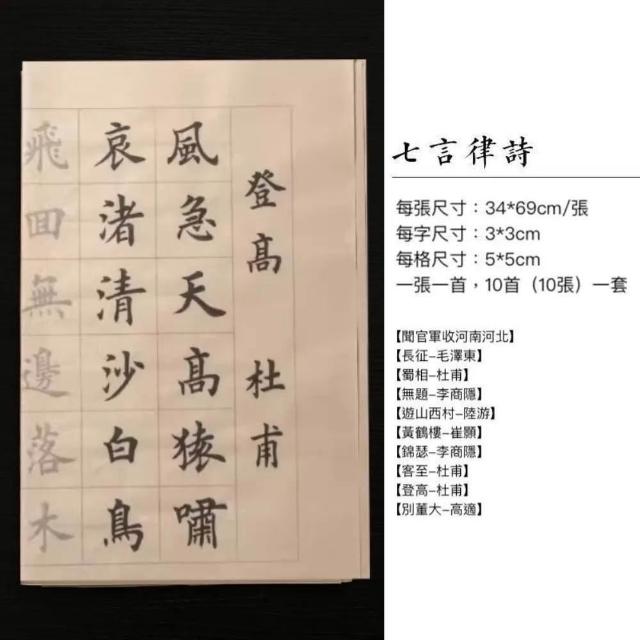 登高 杜甫
風急天高猿嘯
哀渚清沙白鳥
飛回無邊落木
七言律詩
每張尺寸：34*69cm/張
每字尺寸：3*3cm
每格尺寸：5*5cm
一張一首，10首（10張）一套
【聞官軍收河南河北】
【長征–毛澤東】
【蜀相–杜甫】
【無題–李商隱】
【遊山西村–陸游】
【黃鶴樓–崔顥】
【錦瑟–李商隱】
【客至–杜甫】
【登高–杜甫】
【別董大–高適】